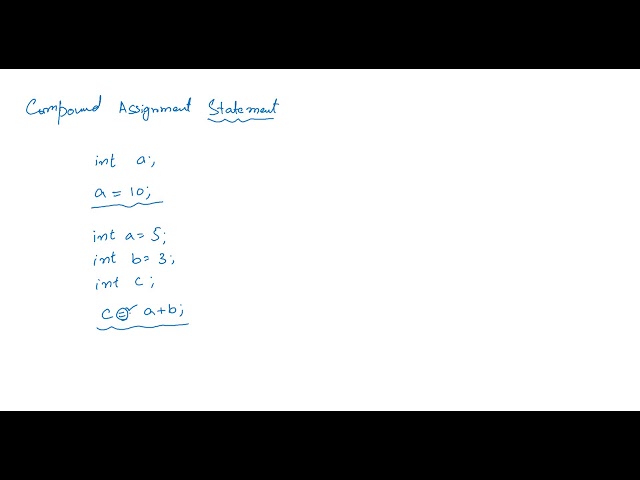 Compound Assignment Statement
int a;
a = 10;
int a = 5;
int b = 3;
int c;
c = a+b;